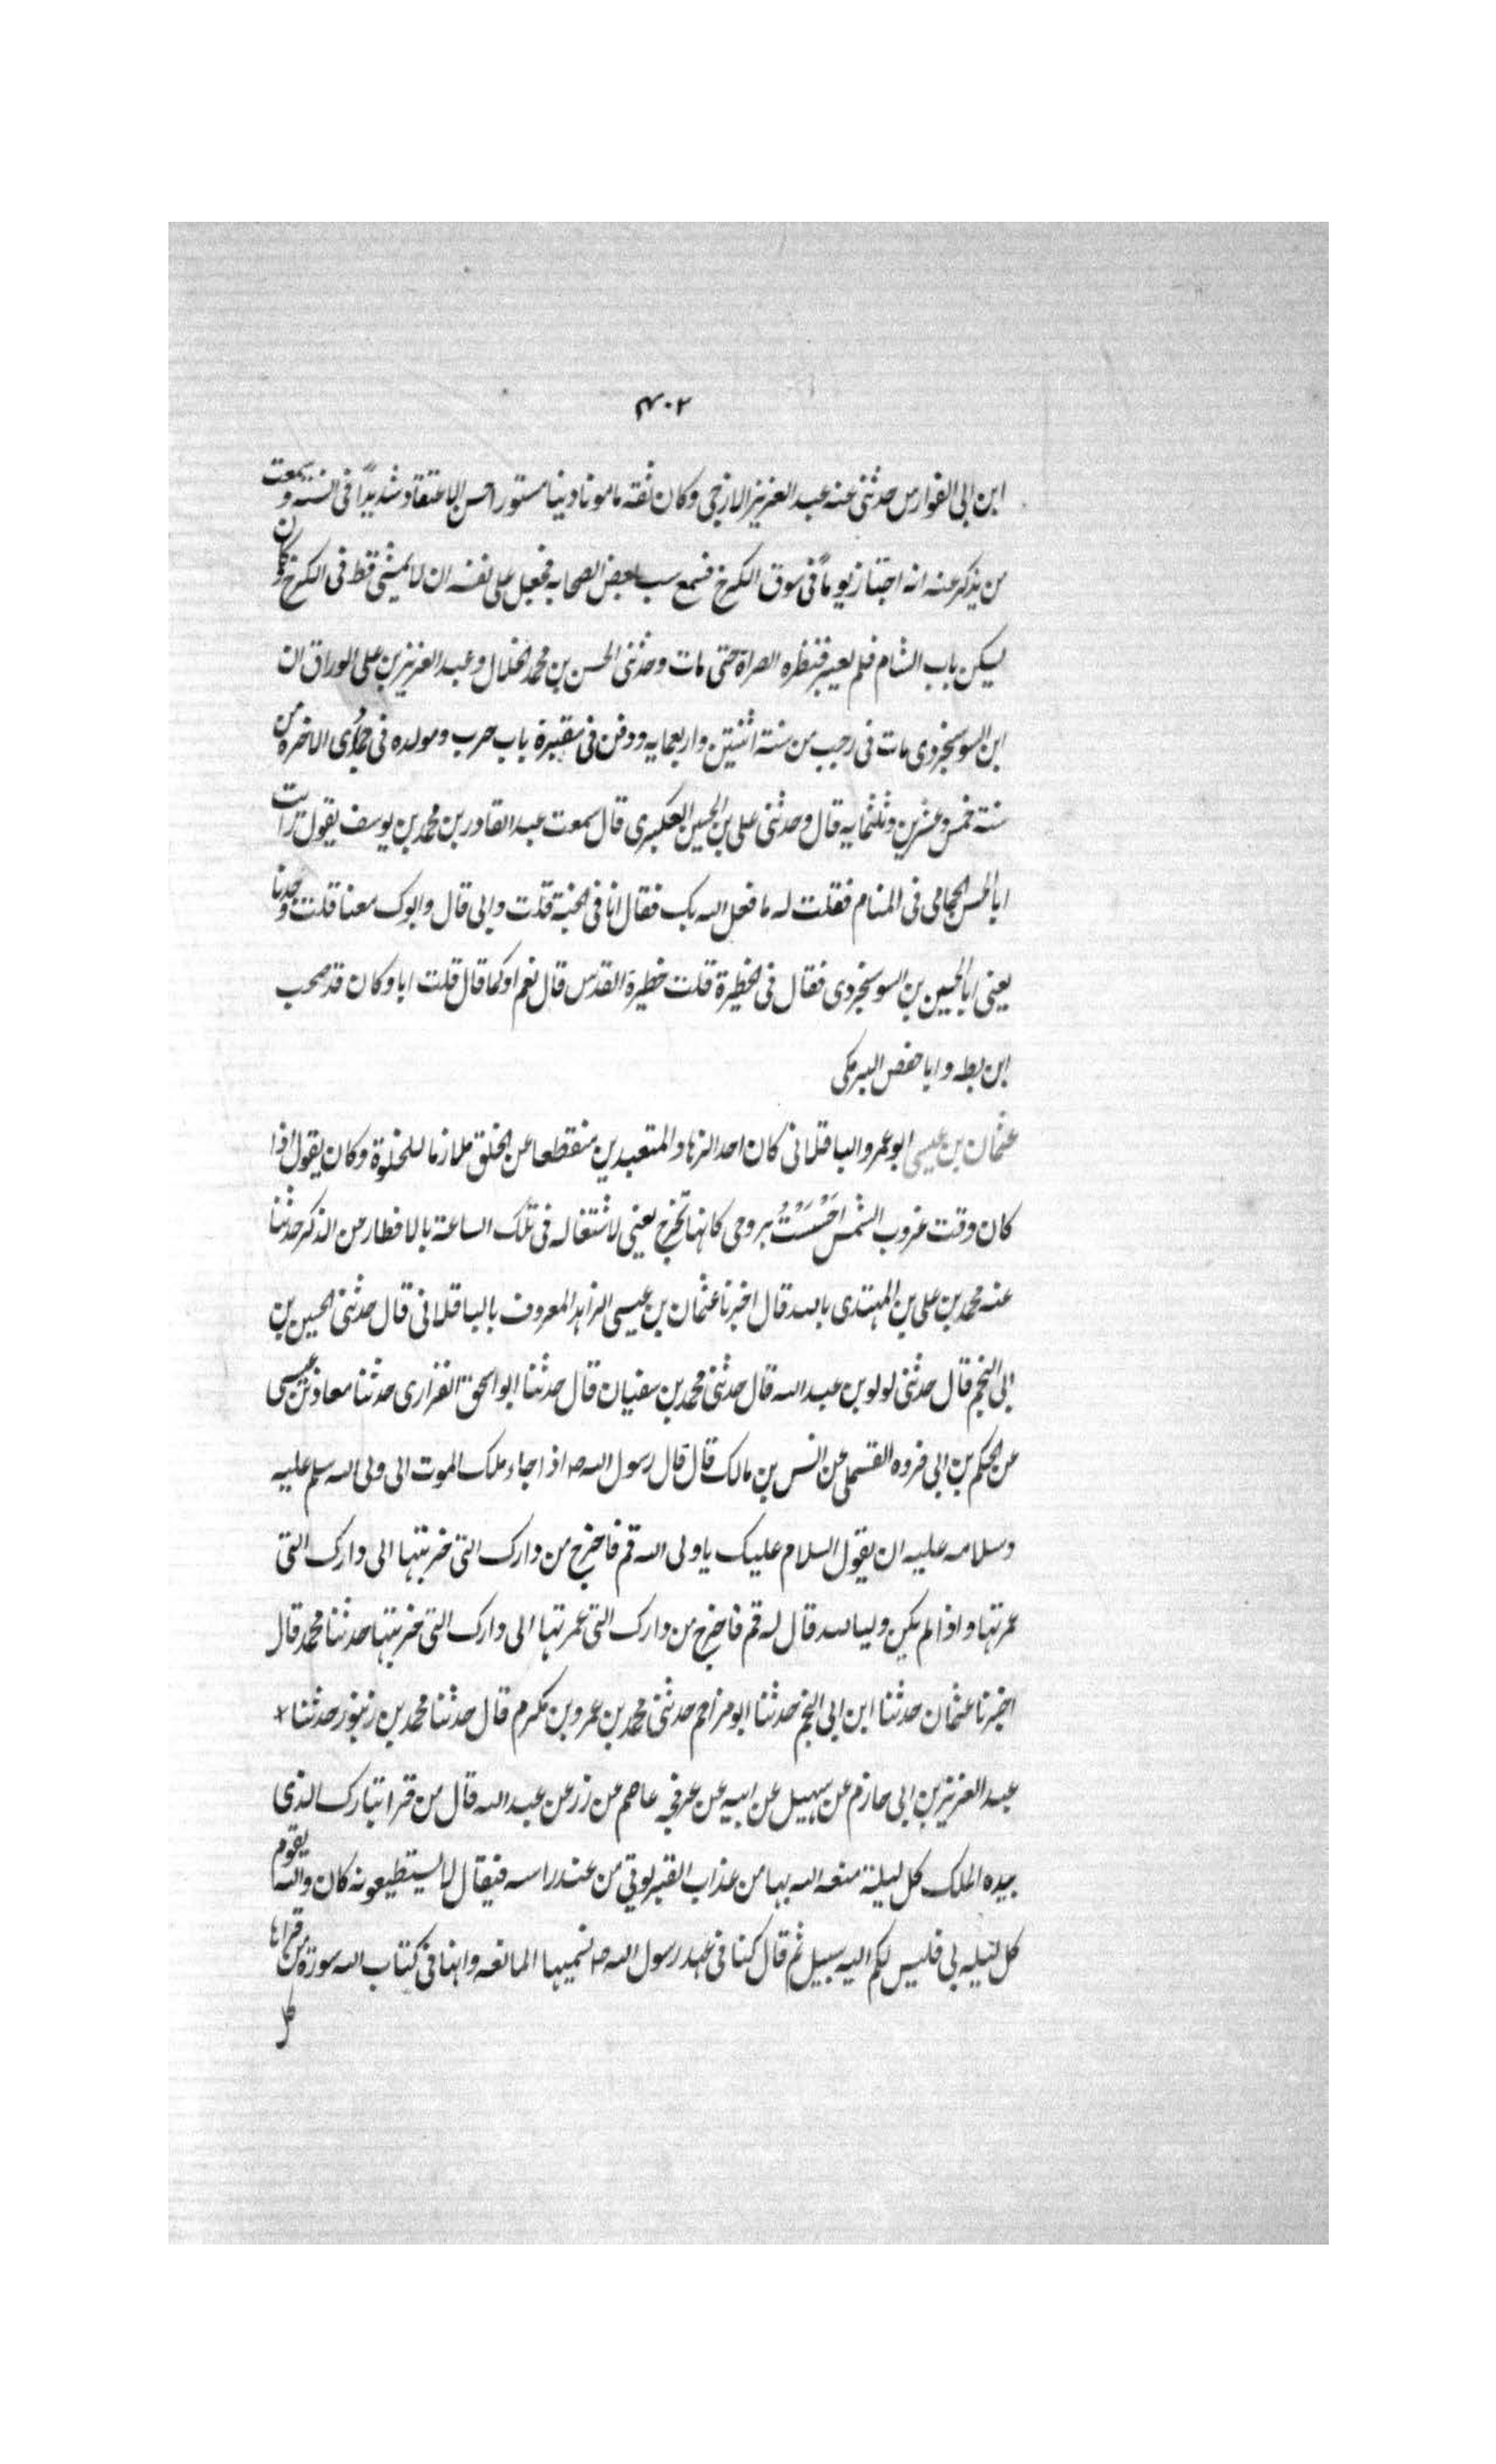 ٤٠٢
ابن ابى الفوارس حدثنى عنه عبد العزيز الازجى وكان ثقة مامونا دينا مستورا حسن الاعتقاد شديدًا فى السنة وسمعت
من يذكر عنه انه اجتاز يومًا فى سوق الكرخ فسمع سب بعض الصحابه فجعل على نفسه ان لا يمشى قط فى الكرخ وكان
يسكن باب الشام فلم يعبر قنطره الصراة حتى مات وحدثنى الحسن بن محمد الخلال وعبد العزيز بن على الوراق ان
ابن السوسنجردى مات فى رجب من سنة اثنتين واربعمايه ودفن فى مقبرة باب حرب ومولده فى جمادى الاخره من
سنة خمس وعشرين وثلثمايه قال وحدثنى على بن الحسين العكبرى قال سمعت عبد القادر بن محمد بن يوسف يقول رايت
ابا الحسن الحمامى فى المنام فقلت له ما فعل الله بك فقال انا فى الجنة قلت وابى قال وابوك معنا قلت وجدنا
يعنى ابا الحسين بن السوسنجردى فقال فى الحظيرة قلت حظيرة القدس قال نعم او كما قال قلت انا وكان قد صحب
ابن بطه وابا حفص البرمكى
عثمان بن عيسى ابو عمرو الباقلانى كان احد الزهاد المتعبدين منقطعا عن الخلق ملازما للخلوة وكان يقول اذا
كان وقت غروب الشمس احْسَسْتُ بروحى كانها تخرج يعنى لاشتغاله فى تلك الساعة بالافطار من الذكر حدثنا
عنه محمد بن على بن المهتدى بالله قال اخبرنا عثمان بن عيسى الزاهد المعروف بالباقلانى قال حدثنى الحسين بن
ابى النجم قال حدثنى لولو بن عبد الله قال حدثنى محمد بن سفيان قال حدثنا ابو اسحق الفزارى حدثنا معاذ بن عيسى
عن الحكم بن ابى فروه القسملى عن انس بن مالك قال قال رسول الله ص اذا جاء ملك الموت الى ولى الله سلم عليه
وسلامه عليه ان يقول السلام عليك يا ولى الله قم فاخرج من دارك التى خربتها الى دارك التى
عمرتها واذا لم يكن وليا لله قال له قم فاخرج من دارك التى عمرتها الى دارك التى خربتها حدثنا محمد قال
اخبرنا عثمان حدثنا ابن ابى النجم حدثنا ابو مزاحم حدثنى محمد بن عمرو بن مكرم قال حدثنا محمد بن زنبور حدثنا
عبد العزيز بن ابى حازم عن سهيل عن ابيه عن عرفجه عاصم عن زر عن عبد الله قال من قرا تبارك الذى
بيده الملك كل ليلة منعه الله بها من عذاب القبر يوتى من عند راسه فيقال لا يستطيعونه كان والله يقوم
كل ليله بى فليس لكم اليه سبيل ثم قال كنا فى عهد رسول الله ص نسميها المانعه وانها فى كتاب الله سورة من قراها
كل